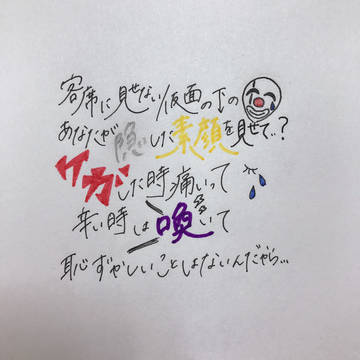 客席に見せない仮面の下の
あなたが隠した素顔を見せて..?
ケガした時痛いって
辛い時は喚いて
恥ずかしいことじゃないんだから...